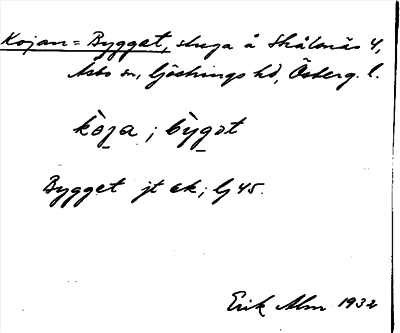 Kojan = Bygget, stuga å Skålnäs 4,
Asbo sn, Göstrings hd, Österg. l.
kòja ; bỳgət
Bygget jt ek; Gj 45.
Erik Alm 1932